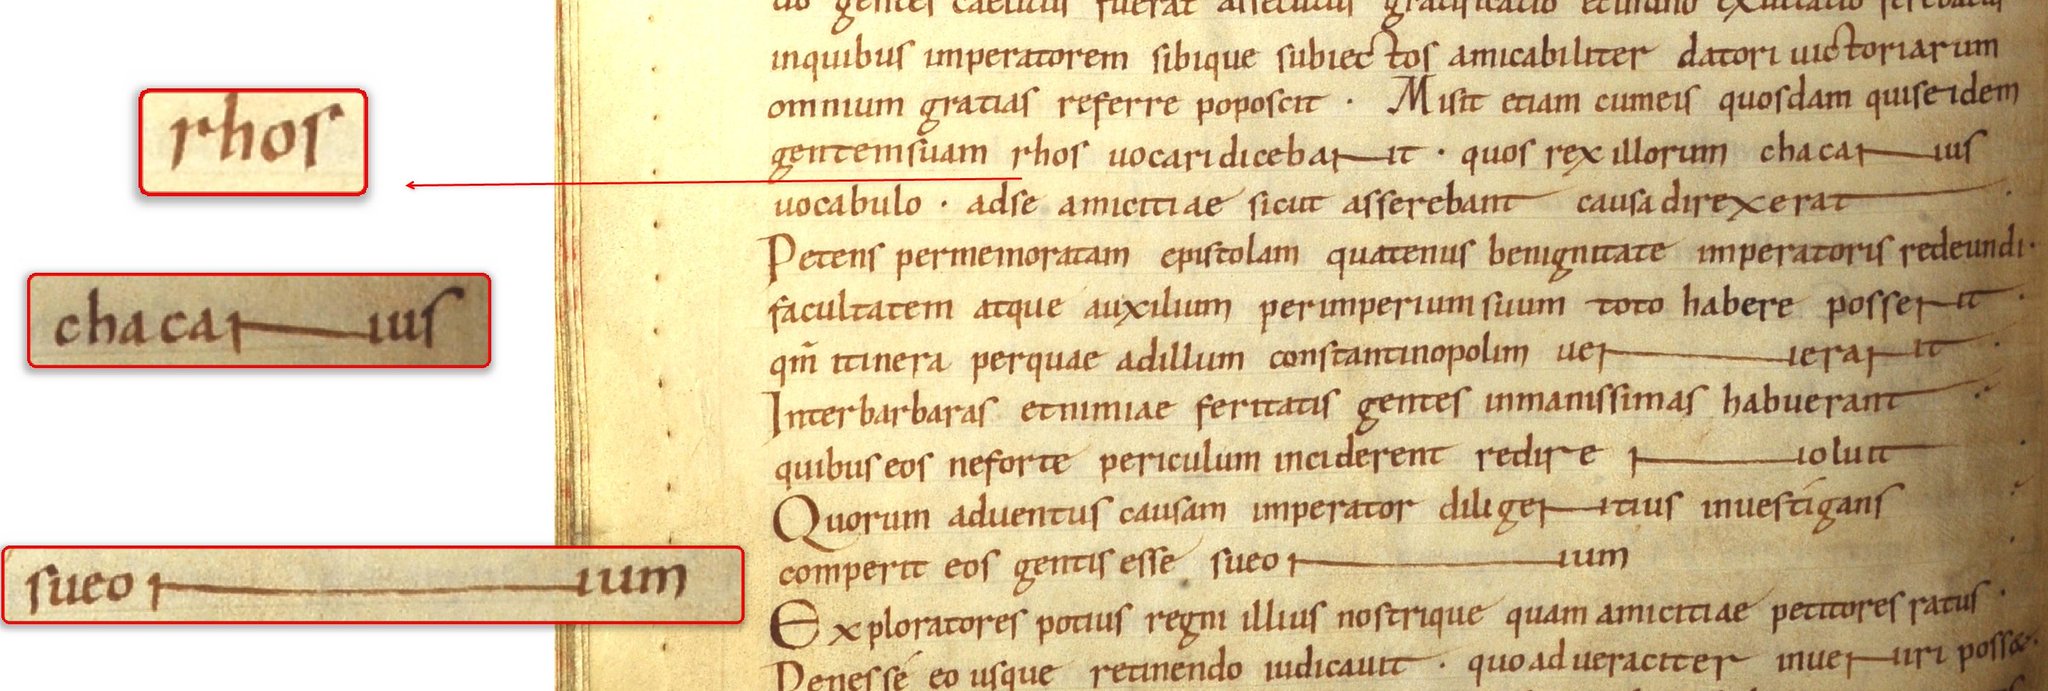 rhos
chacanus
sueonum
do gentes caelitus fuerat assecutus gratificatio
inquibus imperatorem sibique subiectos amicabiliter datori uictoriarum
omnium gratias referre poposcit · Misit etiam cumeis quosdam quise idem
gentemsuam rhos uocari dicebant · quos rex illorum chacanus
uocabulo · adse amicitiae sicut asserebant causa direxerat ·
Petens permemoratam epistolam quatenus benignitate imperatoris redeundi ·
facultatem atque auxilium perimperium suum toto habere possent ·
qm̄ itinera perquae adillum constantinopolim uenerant ·
Interbarbaras etnimiae feritatis gentes inmanissimas habuerant ·
quibus eos neforte periculum inciderent redire noluit ·
Quorum aduentus causam imperator diligentius inuestigans ·
comperit eos gentis esse sueonum ·
Exploratores potius regni illius nostrique quam amicitiae petitores ratus ·
Penes sé eo usque retinendo iudicauit · quoad ueraciter inueniri posset ·